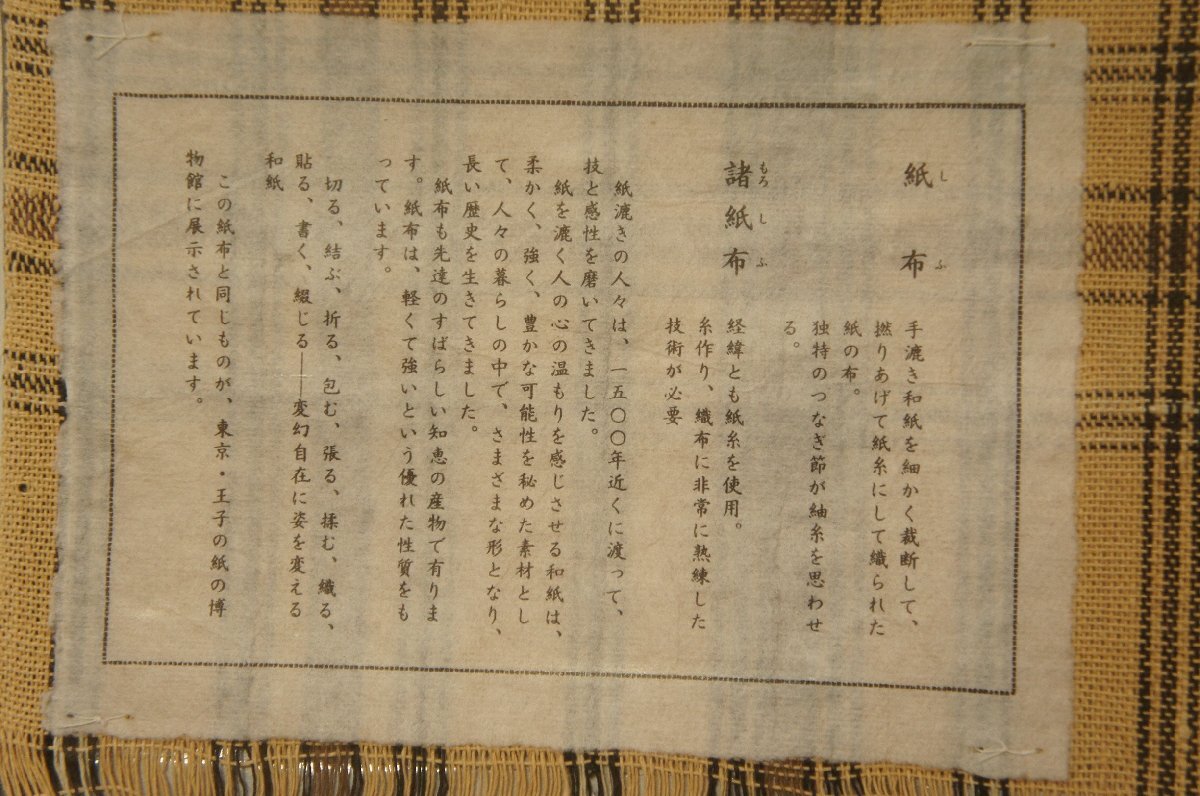 紙布
しふ
手漉き和紙を細かく裁断して、
撚りあげて紙糸にして織られた
紙の布。
独特のつなぎ節が紬糸を思わせ
る。
諸紙布
もろしふ
経緯とも紙糸を使用。
糸作り、織布に非常に熟練した
技術が必要
紙漉きの人々は、一五〇〇年近くに渡って、
技と感性を磨いてきました。
紙を漉く人の心の温もりを感じさせる和紙は、
柔かく、強く、豊かな可能性を秘めた素材とし
て、人々の暮らしの中で、さまざまな形となり、
長い歴史を生きてきました。
紙布も先達のすばらしい知恵の産物で有りま
す。紙布は、軽くて強いという優れた性質をも
っています。
切る、結ぶ、折る、包む、張る、揉む、織る、
貼る、書く、綴じる——変幻自在に姿を変える
和紙
この紙布と同じものが、東京・王子の紙の博
物館に展示されています。